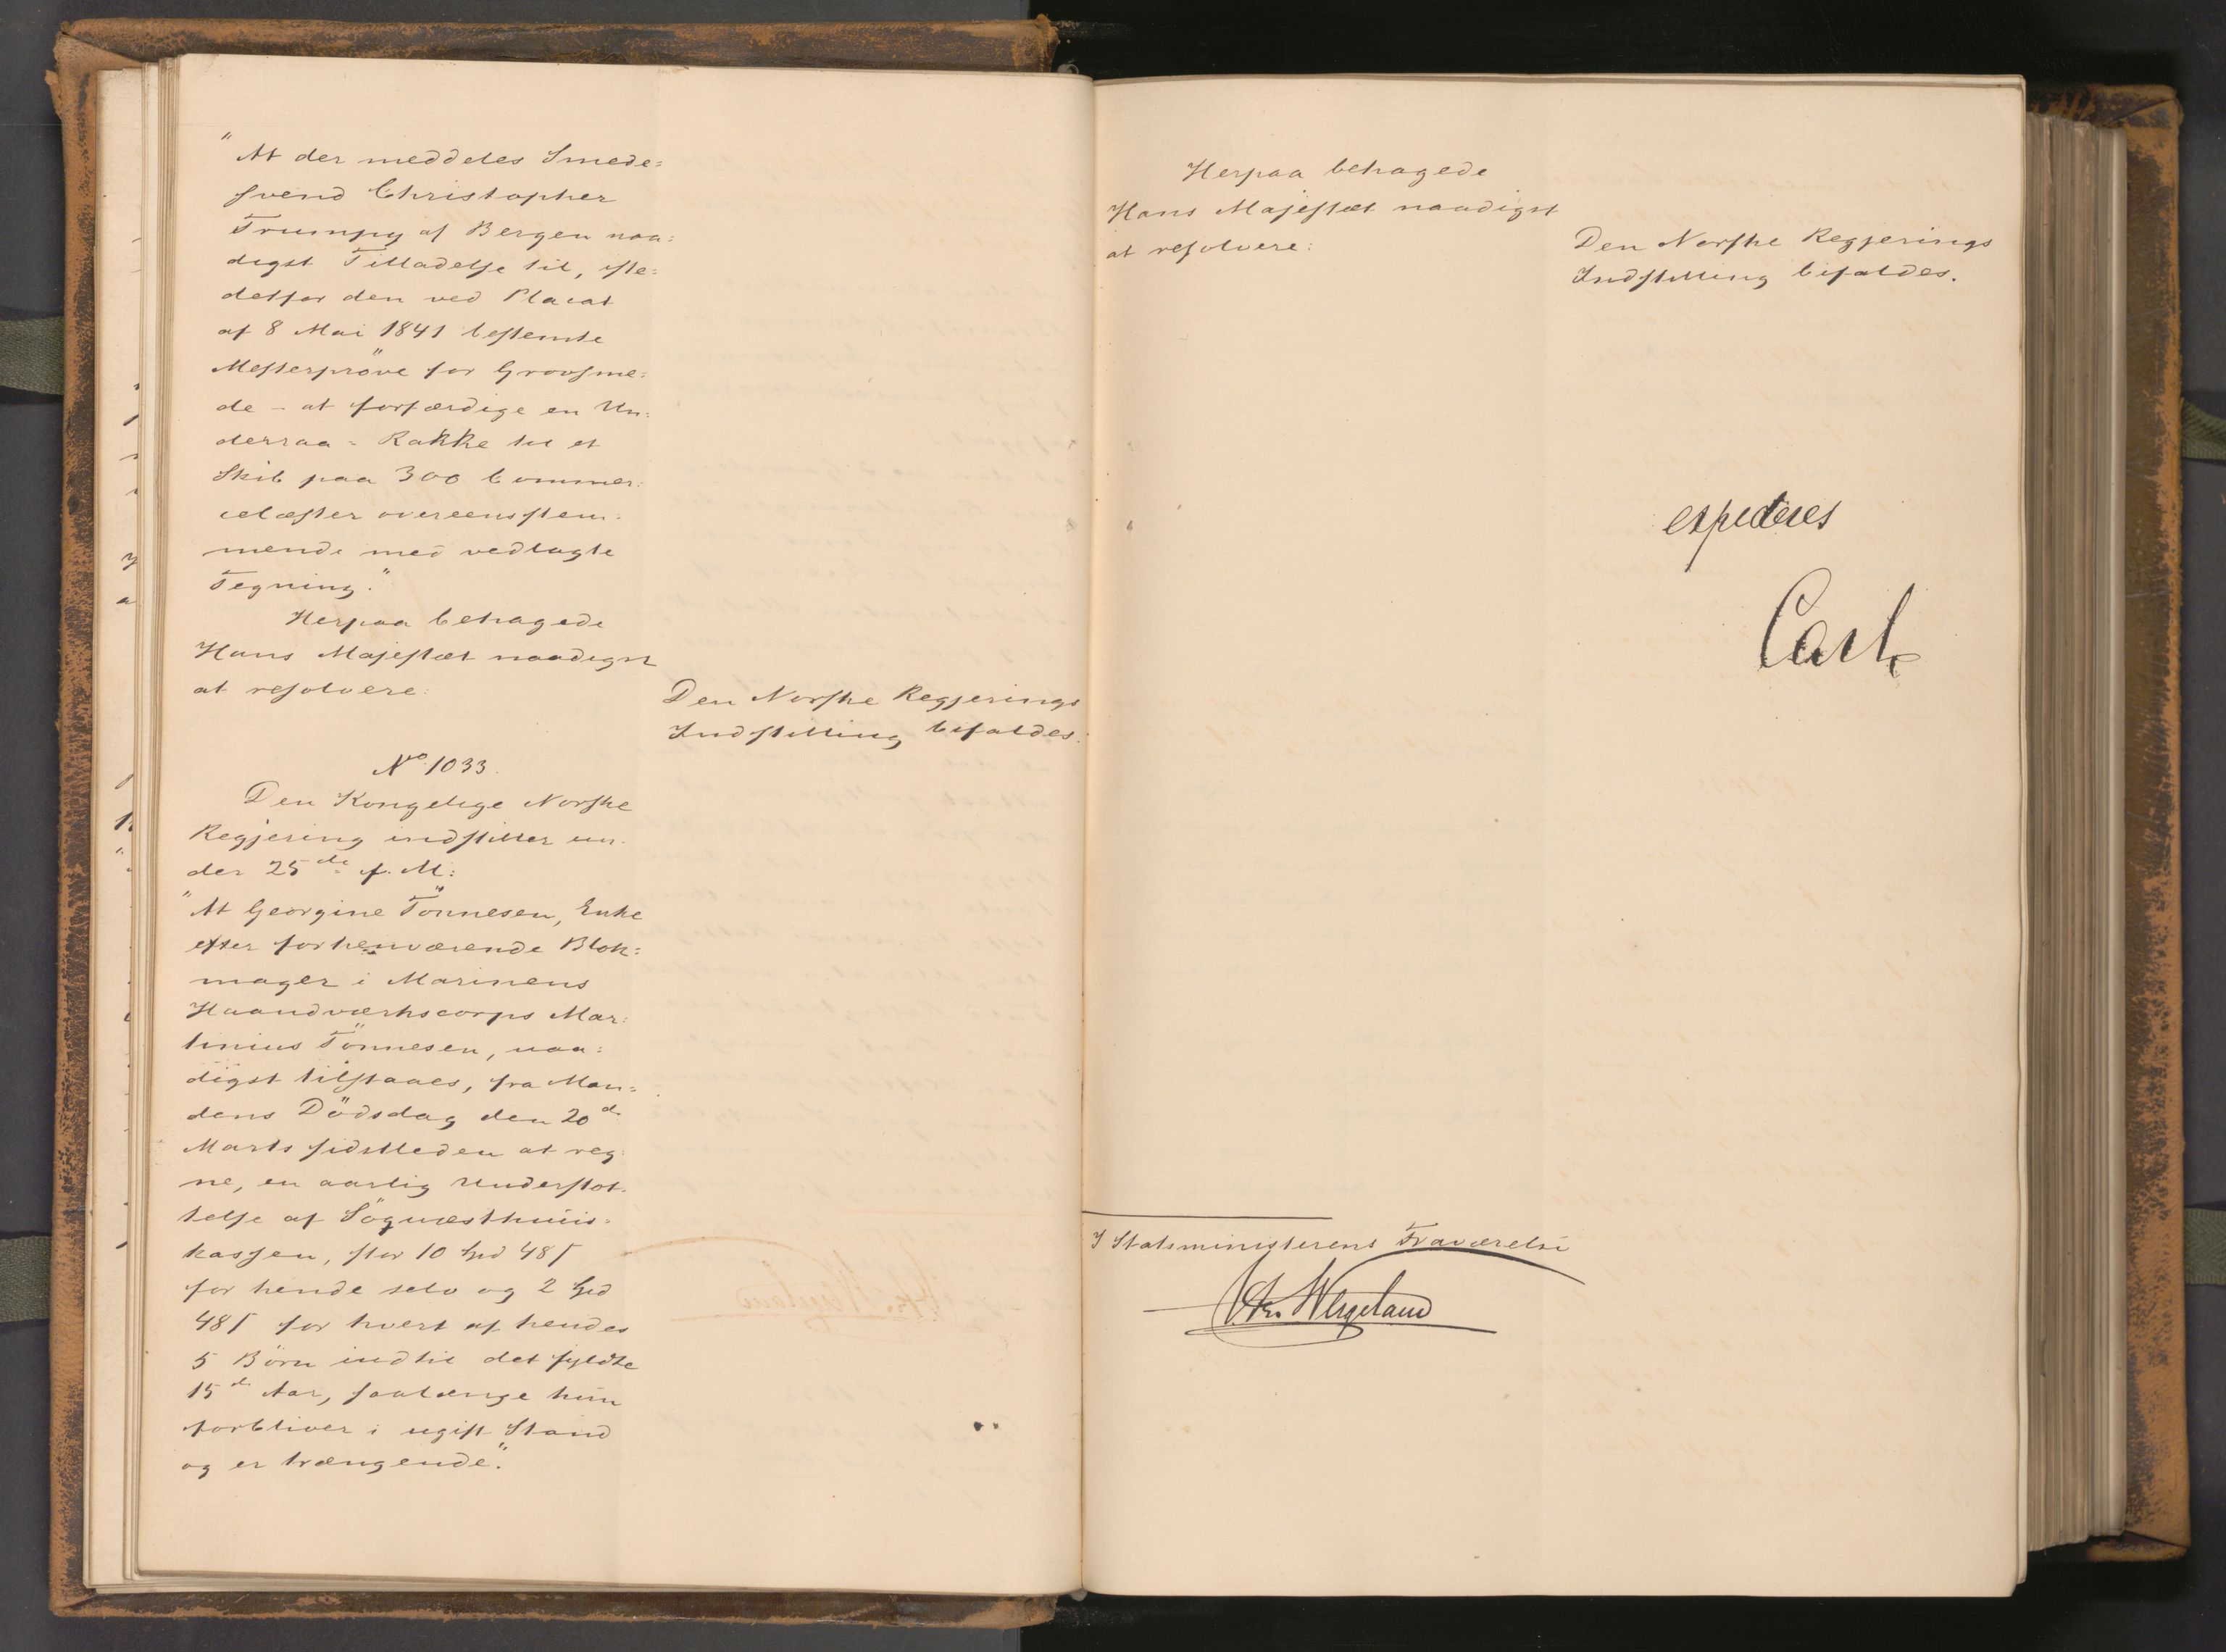 "At der meddeles Smede=
svend Christopher
Trumpy af Bergen naa=
digst Tilladelse til, iste=
detfor den ved Placat
af 8 Mai 1841 bestemte
Mesterpröve for Grovsme=
de - at forfærdige en Un=
derraa=Rakke til et
Skib paa 300 Commer=
celæster overeensstem=
mende med vedlagte
Tegning."
Herpaa behagede
Hans Majestæt naadigst
at resolvere:
Den Norske Regjerings
Indstilling bifaldes.
No 1033.
Den Kongelige Norske
Regjering indstiller un=
der 25de f. M:
"At Georgine Tönnesen, Enke
efter forhenværende Blok=
mager i Marinens
Haandværkscorps Mar=
tinius Tönnesen, naa=
digst tilstaaes, fra Man=
dens Dödsdag den 20de
Marts sidstleden at reg=
ne, en aarlig Understöt=
telse af Söqvæsthuus=
kassen, stor 10 Spd 48 s
for hende selv og 2 Spd
48 s for hvert af hendes
5 Börn indtil det fyldte
15de Aar, saalænge hun
forbliver i ugift Stand
og er trængende."
Herpaa behagede
Hans Majestæt naadigst
at resolvere:
Den Norske Regjerings
Indstilling bifaldes.
expederes
Carl
I Statsministerens Fraværelse
Wergeland